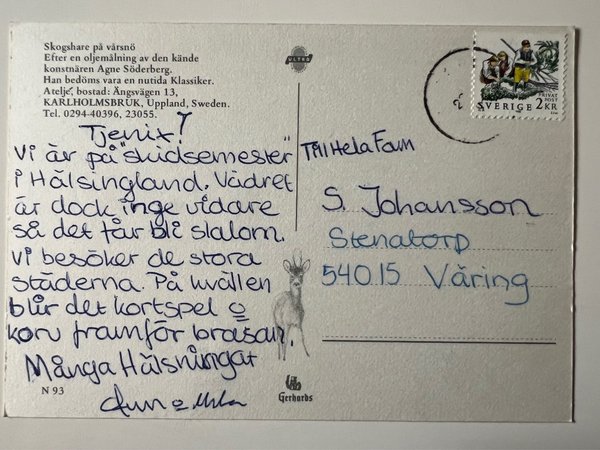 Skogshare på vårsnö
Efter en oljemålning av den kände
konstnären Agne Söderberg.
Han bedöms vara en nutida Klassiker.
Ateljé, bostad: Ängsvägen 13,
KARLHOLMSBRUK, Uppland, Sweden.
Tel. 0294-40396, 23055.
ULTRA
PRIVAT
POST
SVERIGE 2 KR
Tjenix!
Vi är på "skidsemester"
i Hälsingland. Vädret
är dock inge vidare
så det får bli slalom.
Vi besöker de stora
städerna. På kvällen
blir det kortspel o
korv framför brasan.
Många Hälsningar
Till Hela Fam
S. Johansson
Stenatorp
54015 Väring
N 93
Gerhards